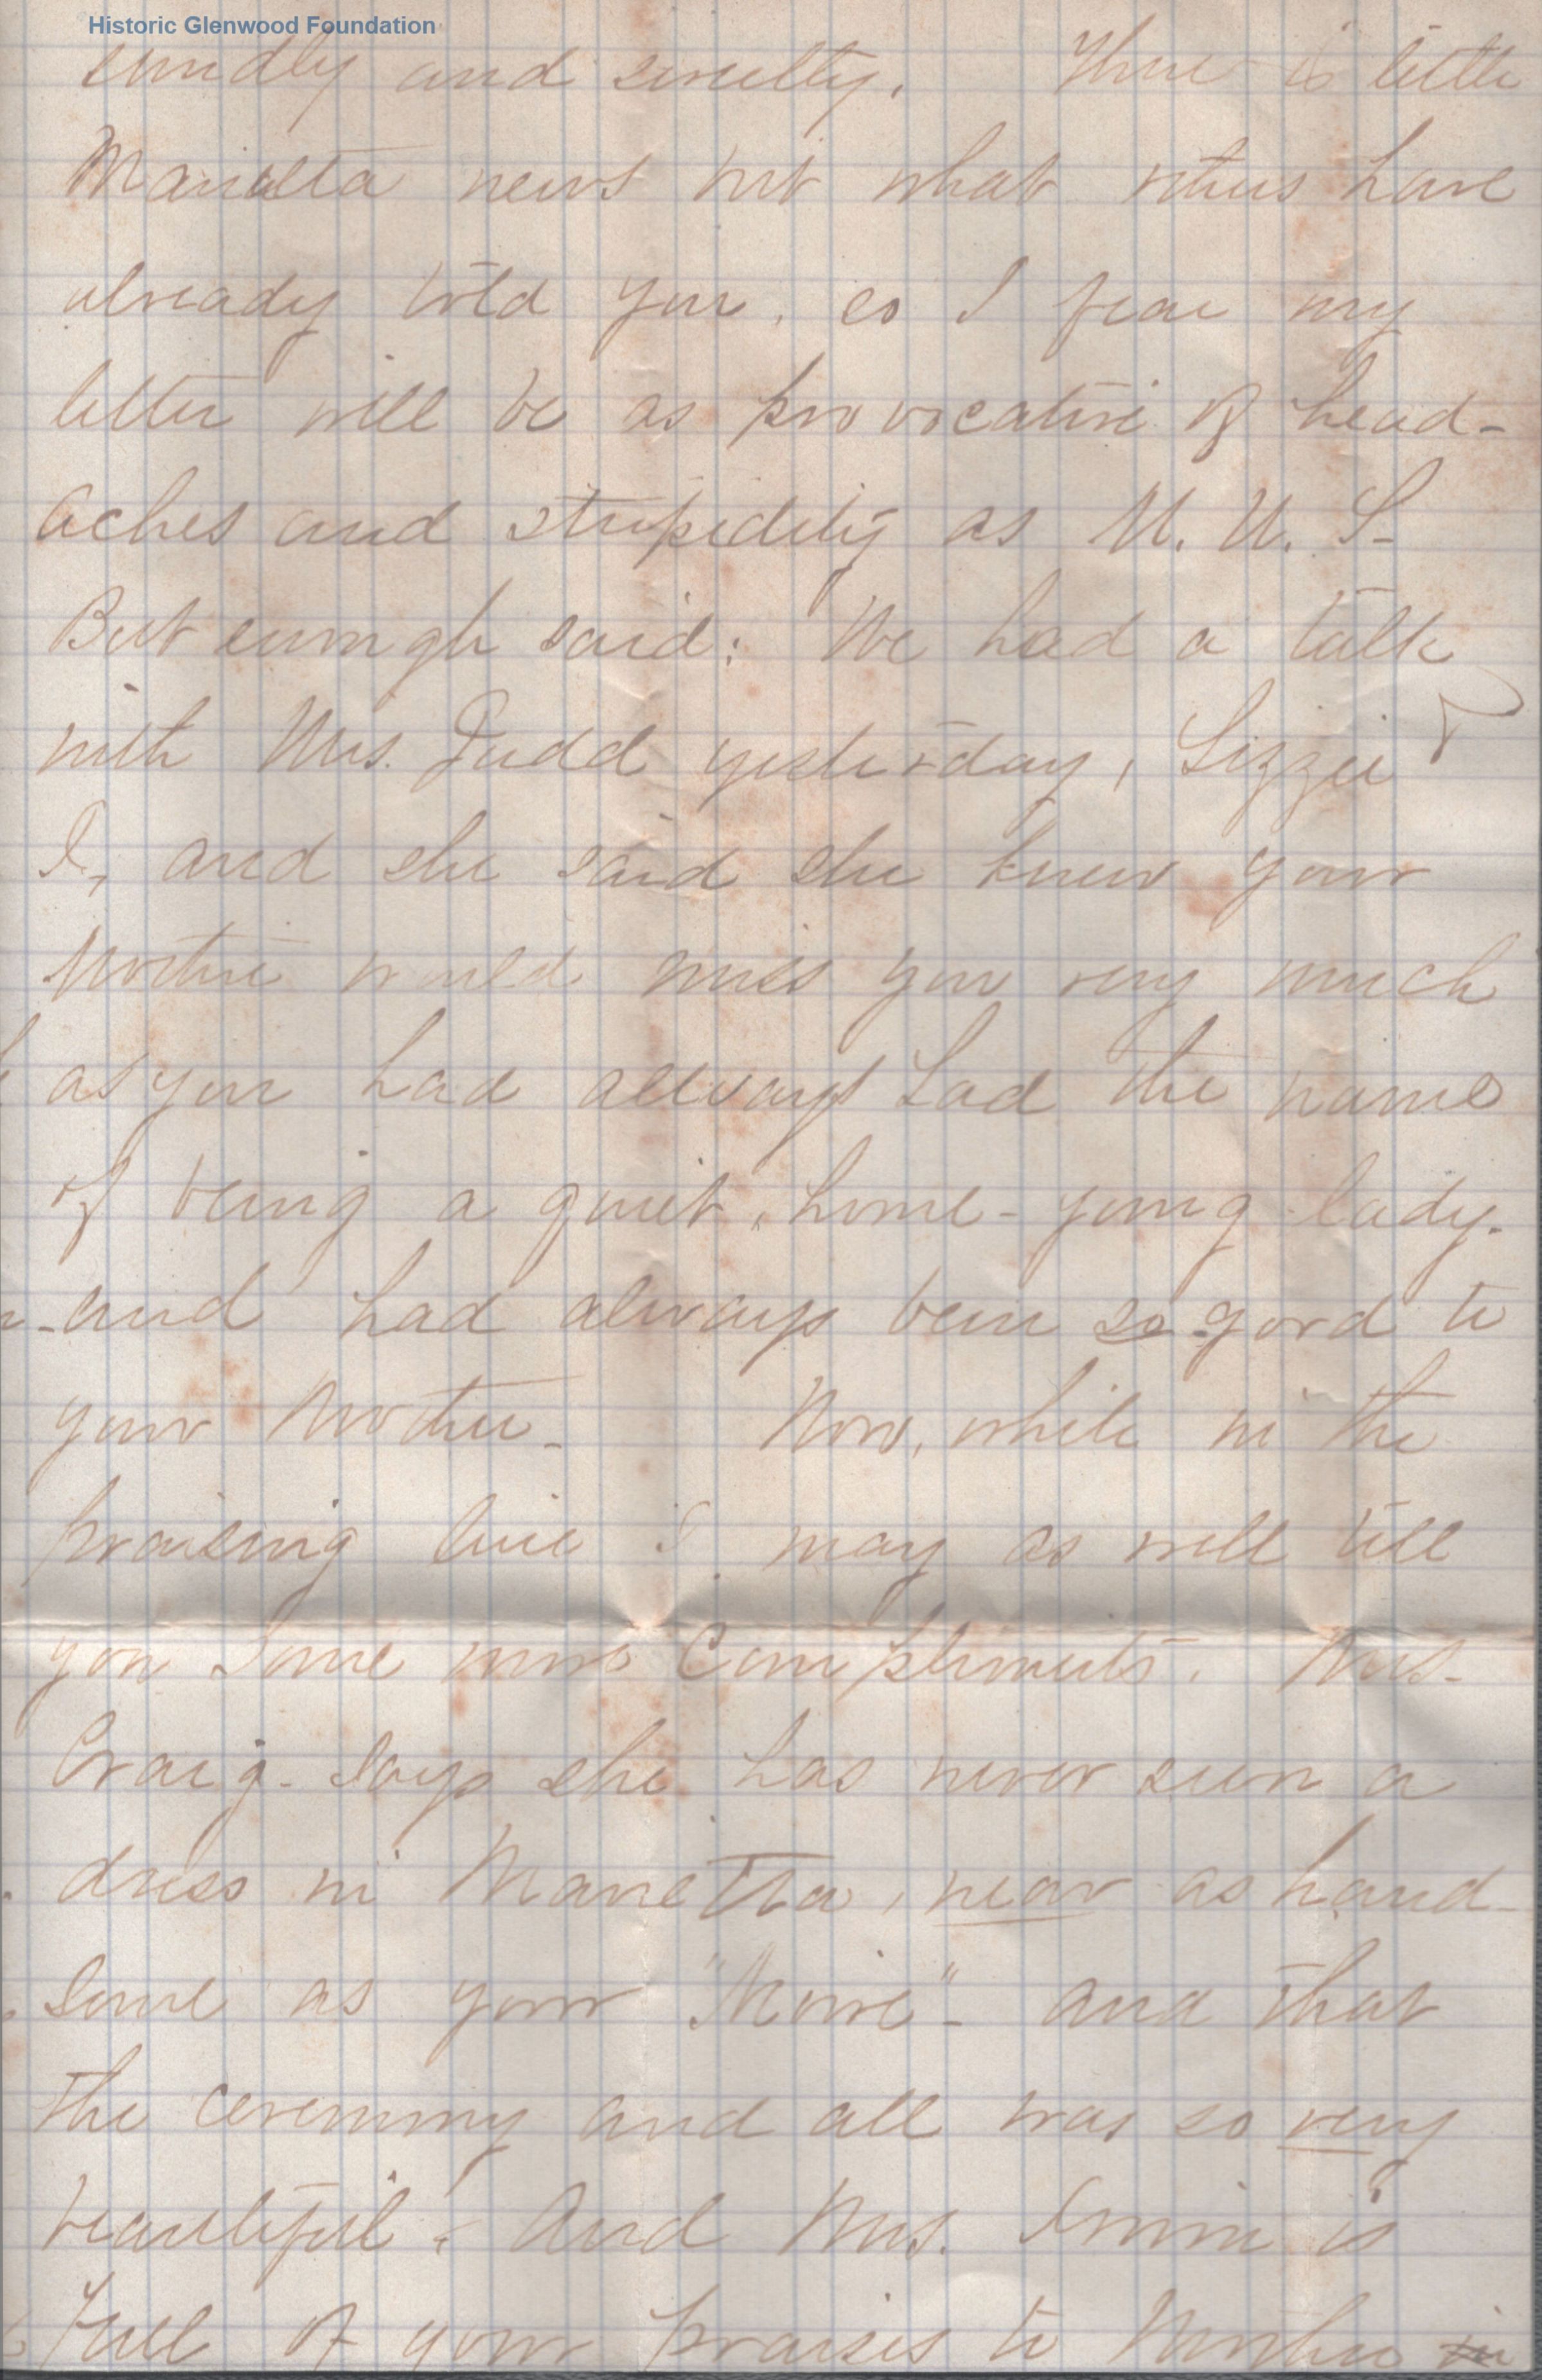 Historic Glenwood Foundation
soundly and sweetly. There is little
Marietta news but what others have
already told you, so I fear my
letter will be as provocative of head-
aches and stupidity as U. U. S-
But enough said: We had a talk
with Mrs. Judd yesterday, Lizzie &
I, and she said she knew your
Mother would miss you very much
as you had allways had the name
of being a quiet, home-young lady.
and had always been so good to
your Mother- Now, while in the
praising line I may as well tell
you some more Compliments. Mrs-
Craig- says she has never seen a
dress in Marietta, near as hand-
some as your "Moire"- and that
the ceremony and all was so very
beautiful. And Mrs. is
full of your praises to Mother